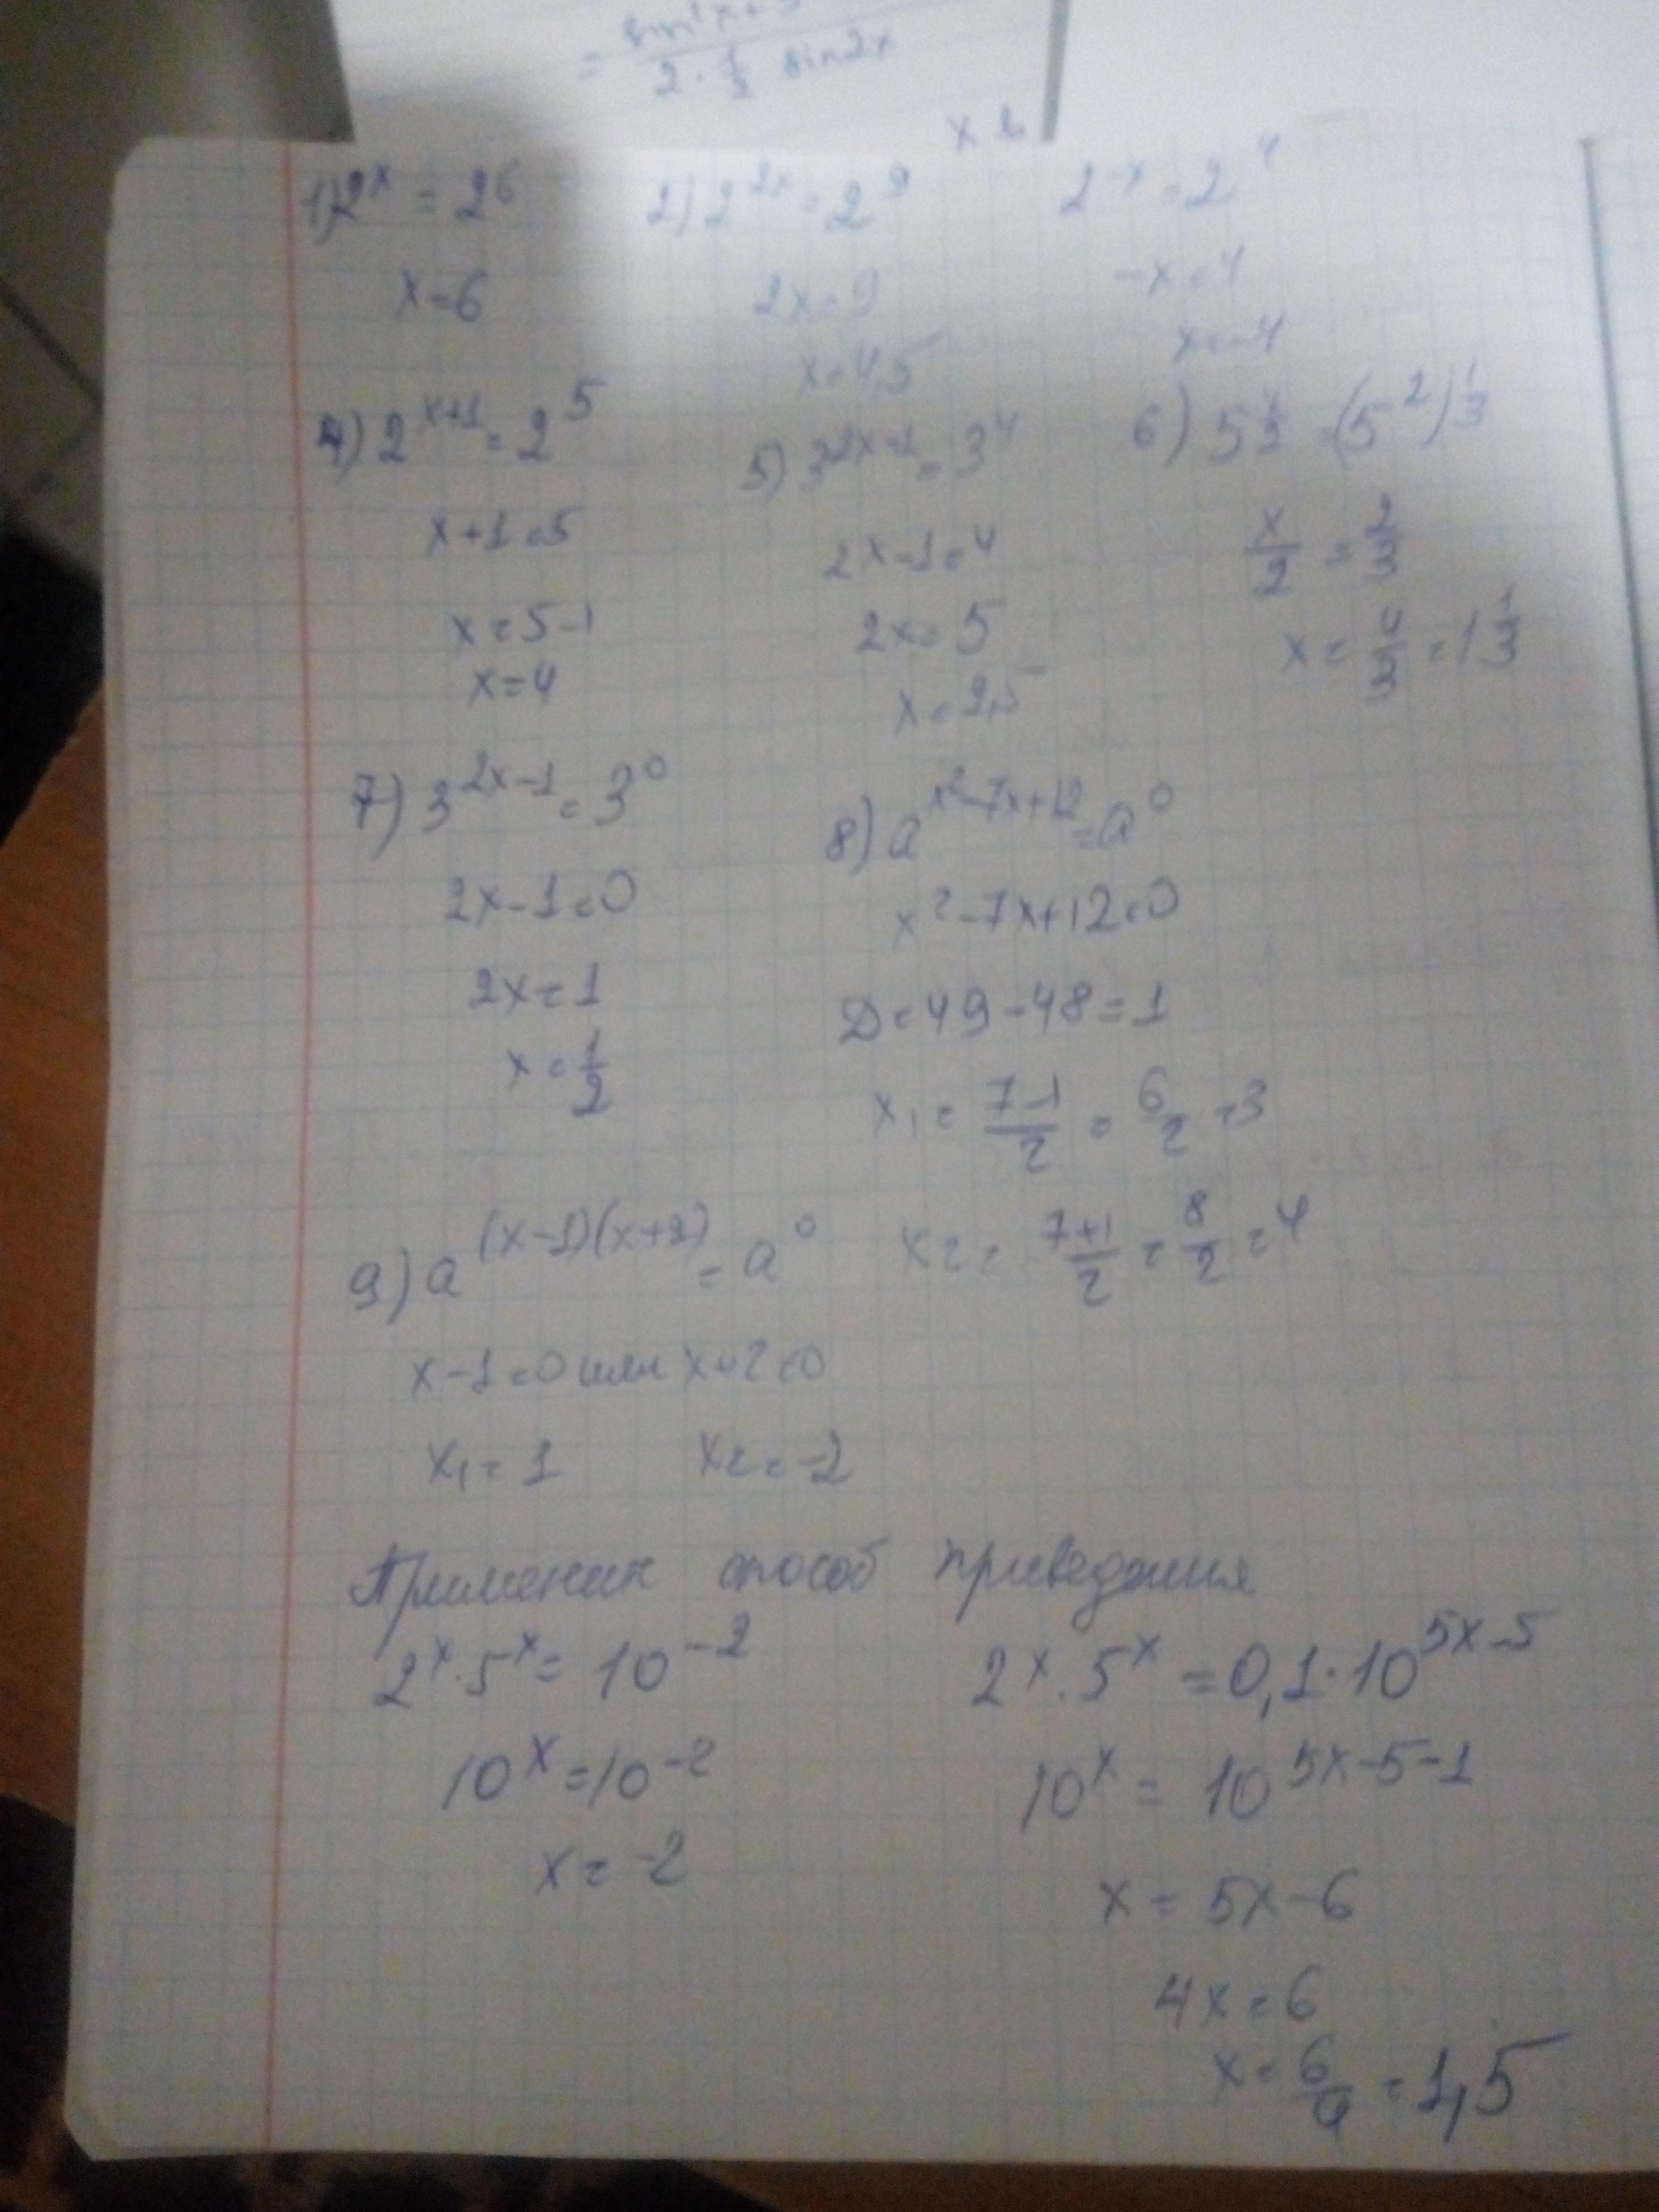 = sin²x+
2 · 1/2 sin2x
x
1) 2^x = 2^6
x=6
2) 2^2x = 2^9
2x=9
x=4,5
2^-x = 2^4
-x=4
x=-4
4) 2^x+1 = 2^5
x+1=5
x=5-1
x=4
5) 3^2x-1 = 3^4
2x-1=4
2x=5
x=2,5
6) = (5^2)^1/3
x/2 = 2/3
x = 4/3 = 1 1/3
7) 3^2x-1 = 3^0
2x-1=0
2x=1
x=1/2
8) a^x²-7x+12 = a^0
x²-7x+12=0
D=49-48=1
x₁ = 7-1/2 = 6/2 = 3
x₂ = 7+1/2 = 8/2 = 4
9) a^(x-1)(x+2) = a^0
x-1=0 или x+2=0
x₁=1 x₂=-2
способ приведения
2^x · 5^x = 10^-2
10^x = 10^-2
x = -2
2^x · 5^x = 0,1 · 10^5x-5
10^x = 10^5x-5-1
x = 5x-6
4x=6
x = 6/4 = 1,5